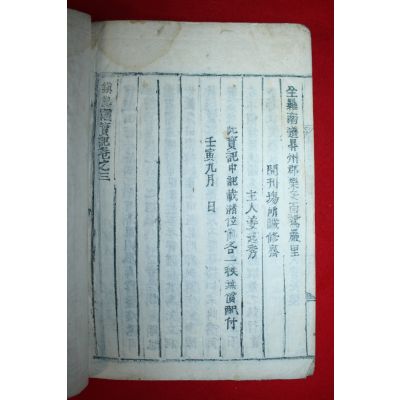 全羅南道昇州郡樂安面鳶巖里
開刊場所誠修齋
主人姜
此實記中記載諸位前各一秩無價配付
壬寅九月 日
實記卷之三